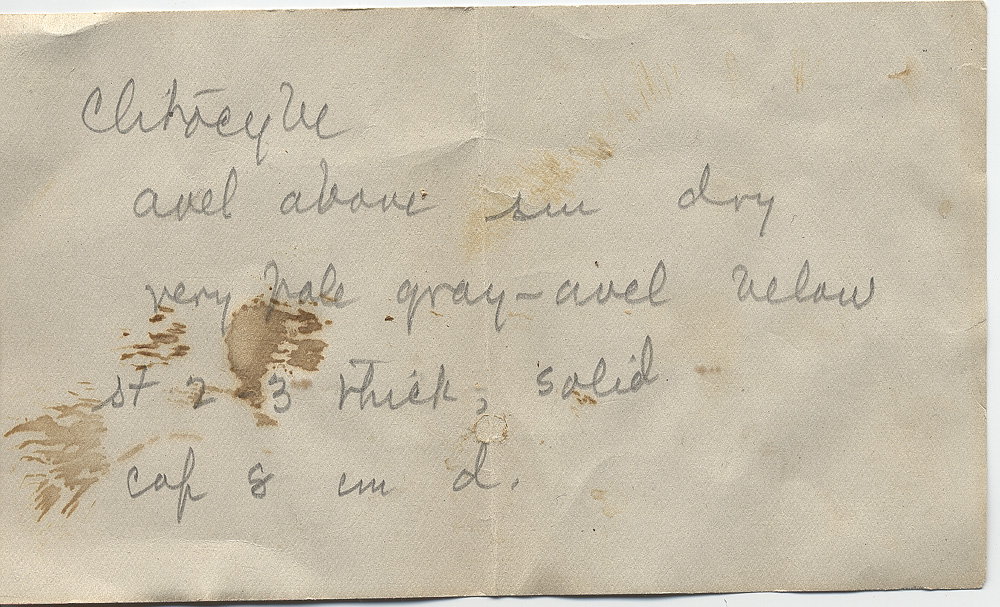 Clitocybe
avel above sm dry
very pale gray-avel below
st 2-3 thick, solid
cap 8 cm d.